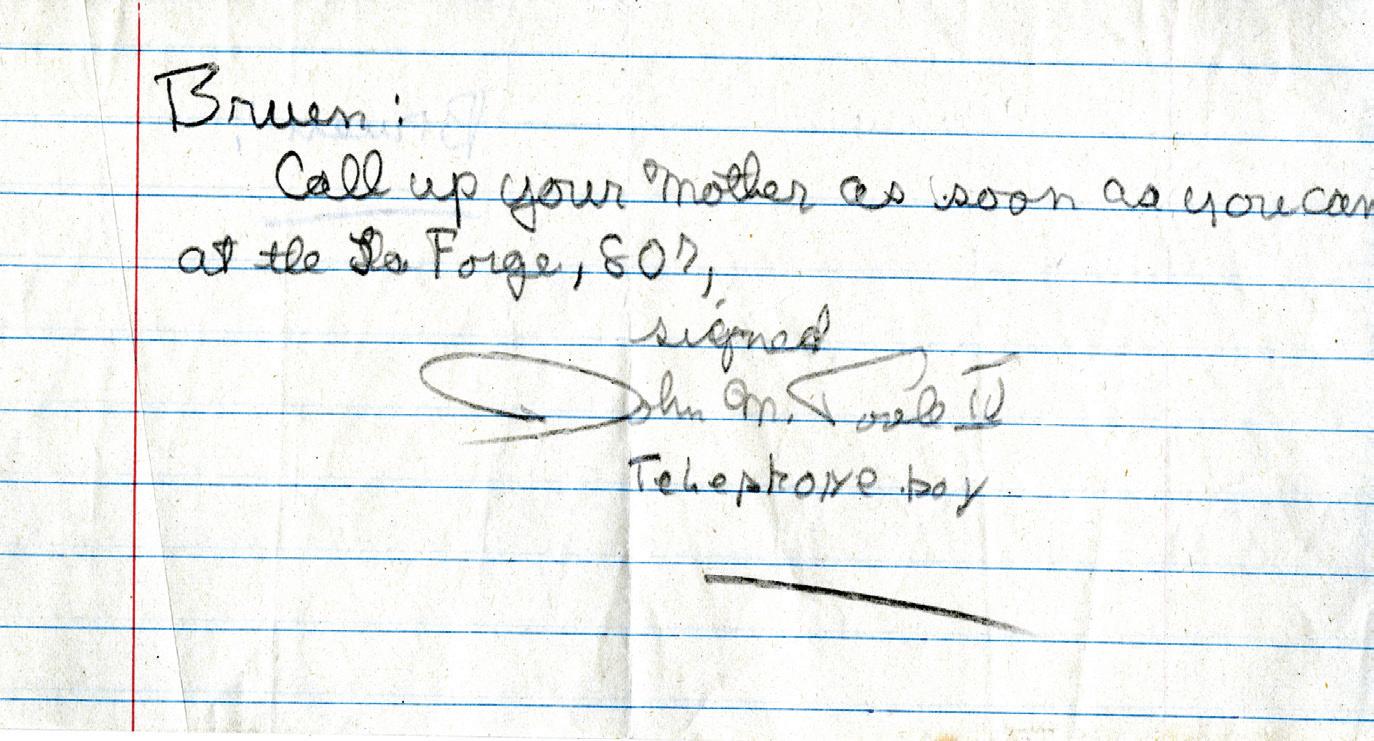 Bruen:
Call up your Mother as soon as you can
at the La Forge, 807,
signed
John M. Poole IV
Telephone boy